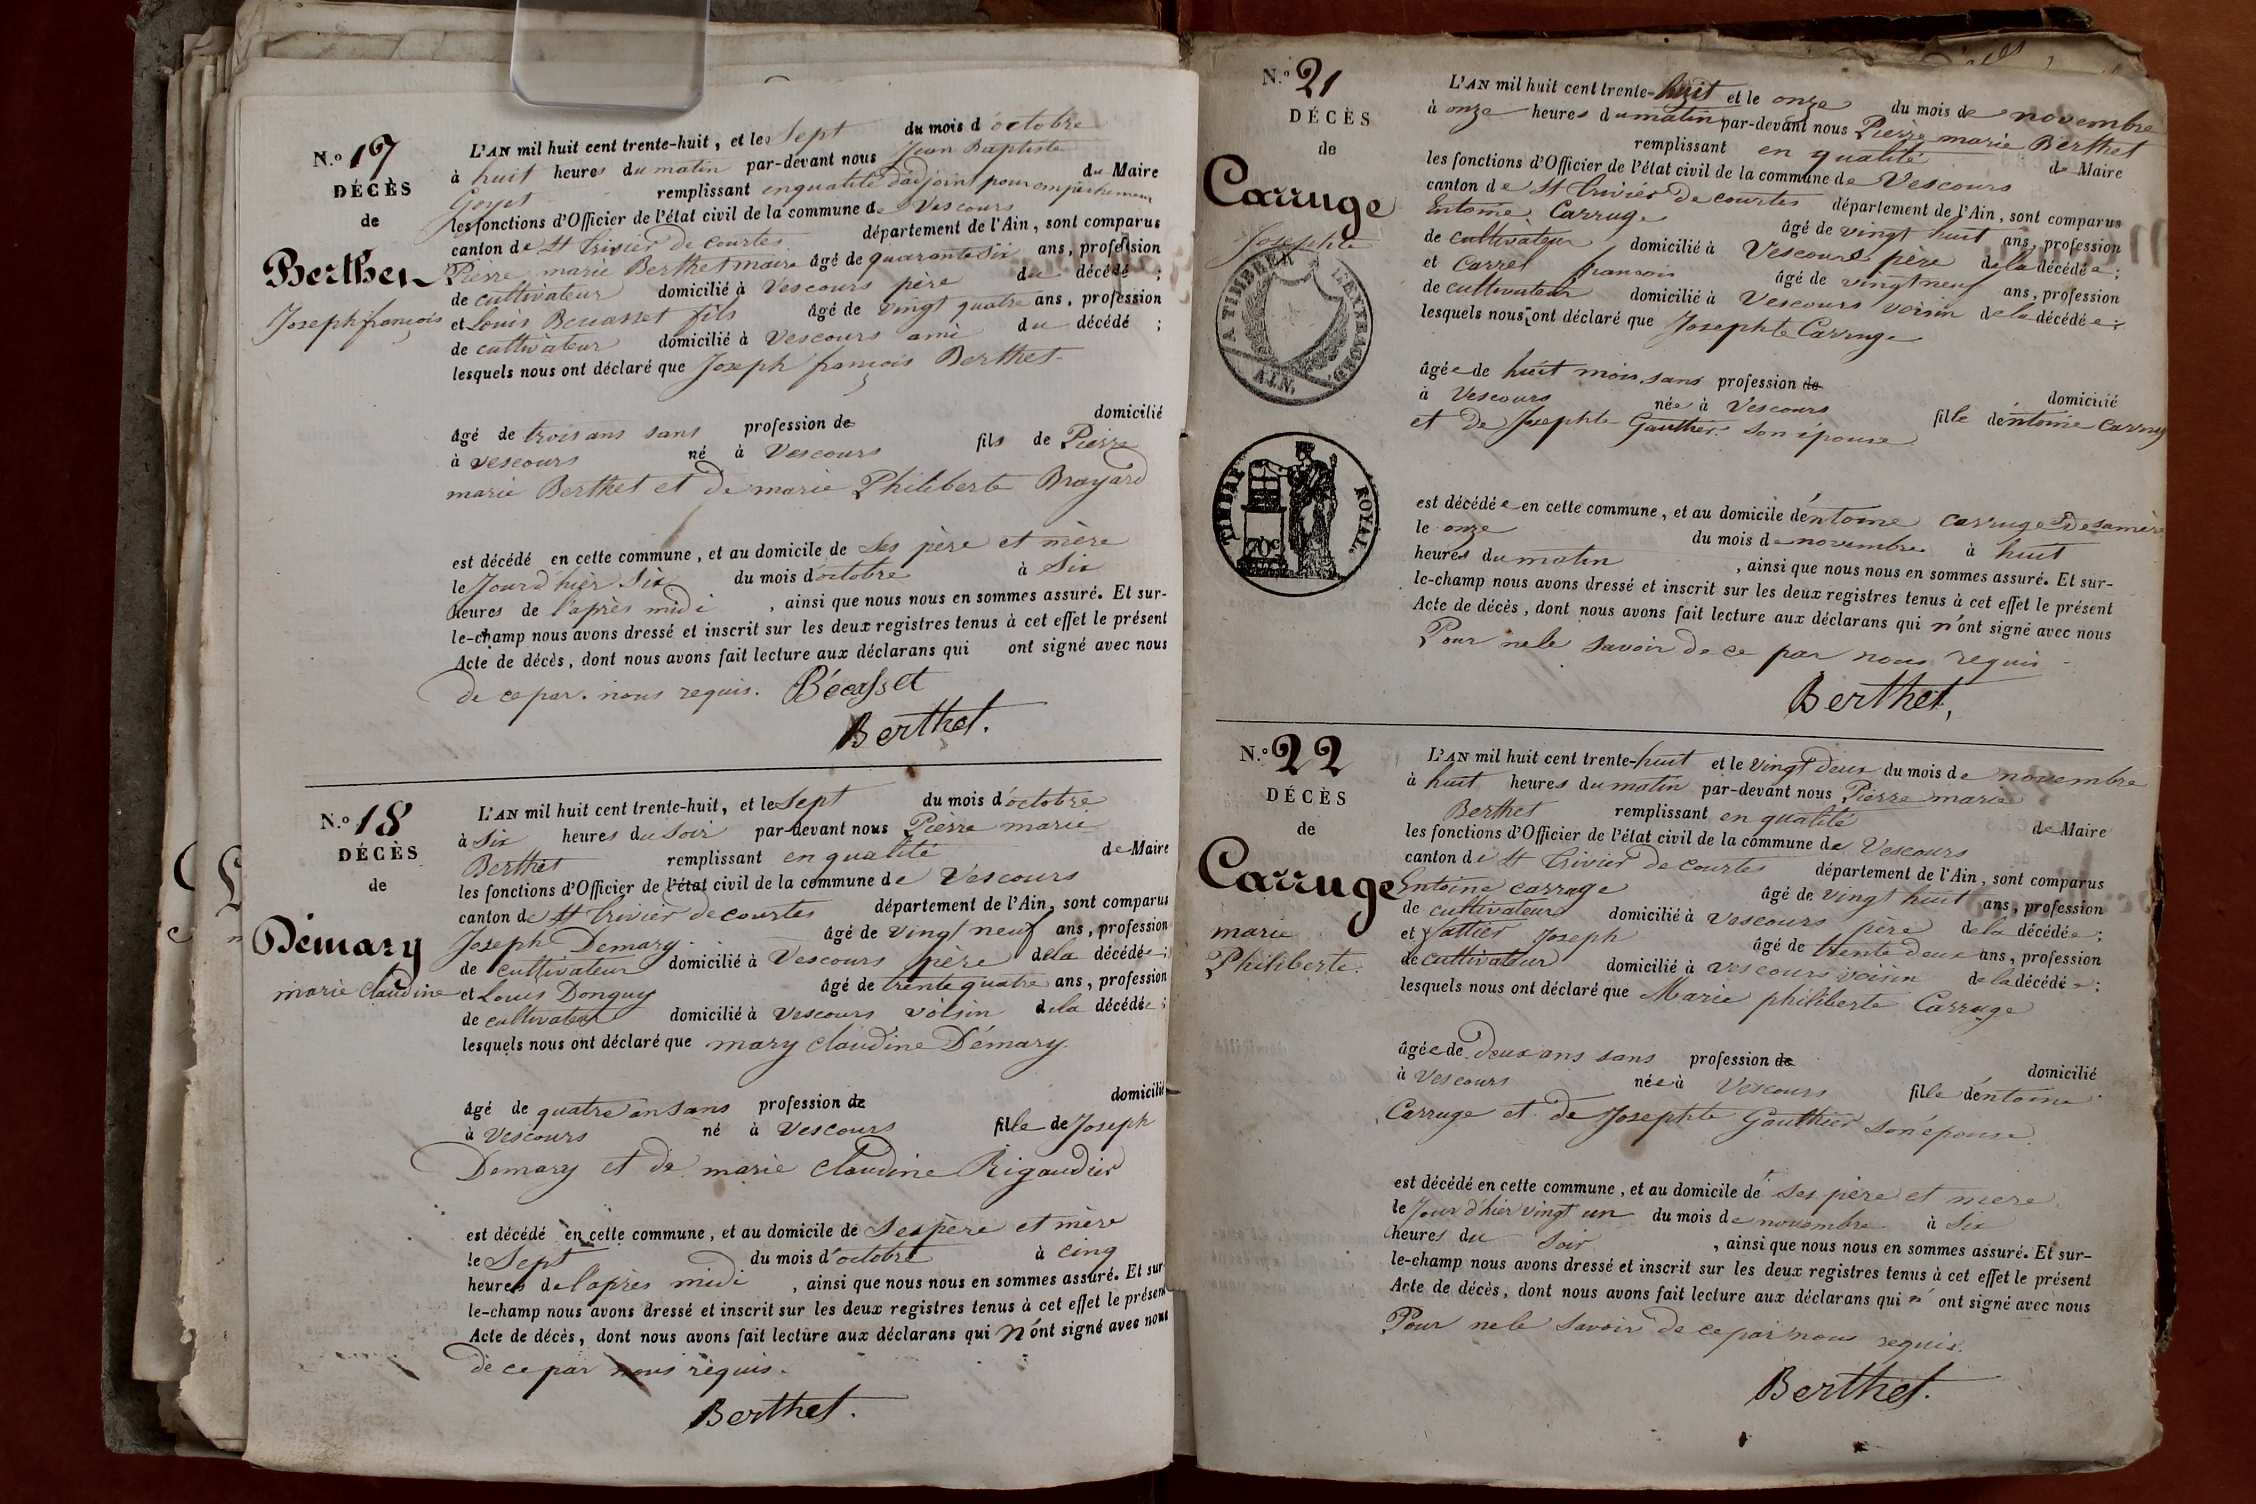 N.o 17
DÉCÈS
de
Berthet
Joseph françois
L'AN mil huit cent trente-huit, et le Sept du mois d'octobre
à huit heures du matin par-devant nous Jean Baptiste
Goyet remplissant en qualité d'adjoint pour empêchement du Maire
les fonctions d'Officier de l'état civil de la commune de Vescours
canton de St Trivier de courtes département de l'Ain, sont comparus
Pierre marie Berthet maire âgé de quarante six ans, profession
de cultivateur domicilié à Vescours père du décédé ;
et Louis Becasset fils âgé de vingt quatre ans, profession
de cultivateur domicilié à Vescours ami du décédé ;
lesquels nous ont déclaré que Joseph françois Berthet
âgé de trois ans sans profession de domicilié
à vescours né à Vescours fils de Pierre
marie Berthet et de marie Philiberte Brayard
est décédé en cette commune, et au domicile de Ses père et mère
le Jour d'hier Six du mois d'octobre à Six
heures de l'après midi , ainsi que nous nous en sommes assuré. Et sur-
le-champ nous avons dressé et inscrit sur les deux registres tenus à cet effet le présent
Acte de décès, dont nous avons fait lecture aux déclarans qui ont signé avec nous
de ce par nous requis. Bécasset
Berthet.
N.o 18
DÉCÈS
de
Démary
marie claudine
L'AN mil huit cent trente-huit, et le Sept du mois d'octobre
à Six heures du Soir par-devant nous Pierre marie
Berthet remplissant en qualité de Maire
les fonctions d'Officier de l'état civil de la commune de Vescours
canton de St Trivier de courtes département de l'Ain, sont comparus
Joseph Demary. âgé de vingt neuf ans, profession
de cultivateur domicilié à Vescours père de la décédée ;
et Louis Donguy âgé de trente quatre ans, profession
de cultivateur domicilié à Vescours voisin de la décédée ;
lesquels nous ont déclaré que mary claudine Démary.
âgé de quatre an sans profession de domicilié
à Vescours né à Vescours fille de Joseph
Demary et de marie claudine Rigaudier
est décédé en cette commune, et au domicile de Ses père et mère
le Sept du mois d'octobre à cinq
heures de l'après midi , ainsi que nous nous en sommes assuré. Et sur
le-champ nous avons dressé et inscrit sur les deux registres tenus à cet effet le présent
Acte de décès, dont nous avons fait lecture aux déclarans qui n'ont signé avec nous
de ce par nous requis.
Berthet.
N.o 21
DÉCÈS
de
Carruge
Josephte
A TIMBRER A L'EXTRAORD.
AIN.
TIMBRE ROYAL.
L'AN mil huit cent trente-huit et le onze du mois de novembre
à onze heures du matin par-devant nous Pierre marie Berthet
remplissant en qualité de Maire
les fonctions d'Officier de l'état civil de la commune de Vescours
canton de St Trivier de courtes département de l'Ain, sont comparus
Entoine Carruge âgé de vingt huit ans, profession
de cultivateur domicilié à Vescours père de la décédée ;
et Carrel francois âgé de vingt neuf ans, profession
de cultivateur domicilié à Vescours voisin de la décédée ;
lesquels nous ont déclaré que Josephte Carruge
âgée de huit mois sans profession de domicilié
à Vescours née à Vescours fille d'entoine Carruge
et de Josephte Gauthier son épouse
est décédée en cette commune, et au domicile d'entoine Carruge et de sa mère
le onze du mois de novembre à huit
heures du matin , ainsi que nous nous en sommes assuré. Et sur-
le-champ nous avons dressé et inscrit sur les deux registres tenus à cet effet le présent
Acte de décès, dont nous avons fait lecture aux déclarans qui n'ont signé avec nous
Pour ne le savoir de ce par nous requis
Berthet,
N.o 22
DÉCÈS
de
Carruge
marie
Philiberte.
L'AN mil huit cent trente-huit et le vingt deux du mois de novembre
à huit heures du matin par-devant nous Pierre marie
Berthet remplissant en qualité de Maire
les fonctions d'Officier de l'état civil de la commune de Vescours
canton de St Trivier de courtes département de l'Ain, sont comparus
Entoine carruge âgé de vingt huit ans, profession
de cultivateur domicilié à Vescours père de la décédée ;
et Joseph âgé de trente deux ans, profession
de cultivateur domicilié à vescours voisin de la décédée ;
lesquels nous ont déclaré que Marie philiberte Carruge
âgée de deux ans sans profession de domicilié
à Vescours née à Vescours fille d'entoine
Carruge et de Josephte Gauthier son épouse.
est décédé en cette commune, et au domicile de Ses père et mere
le Jour d'hier vingt un du mois de novembre à Six
heures du Soir , ainsi que nous nous en sommes assuré. Et sur-
le-champ nous avons dressé et inscrit sur les deux registres tenus à cet effet le présent
Acte de décès, dont nous avons fait lecture aux déclarans qui n'ont signé avec nous
Pour ne le Savoir de ce par nous requis.
Berthet.